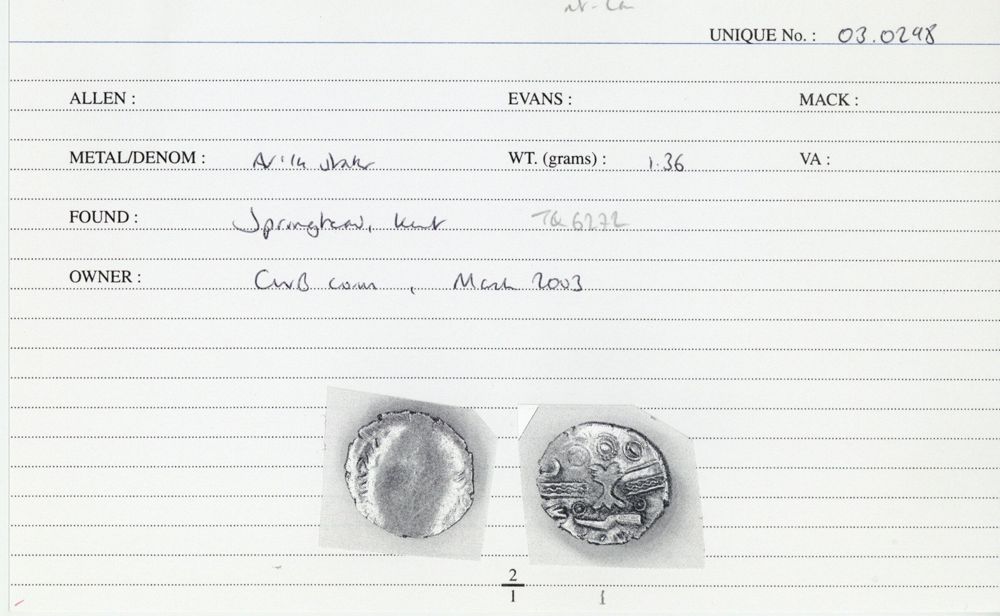 UNIQUE No. : 03.0298
ALLEN : EVANS : MACK :
METAL/DENOM : AV 1/4 stater WT. (grams) : 1.36 VA :
FOUND : Springhead, Kent TQ 6272
OWNER : CWB coin, March 2003
2
1